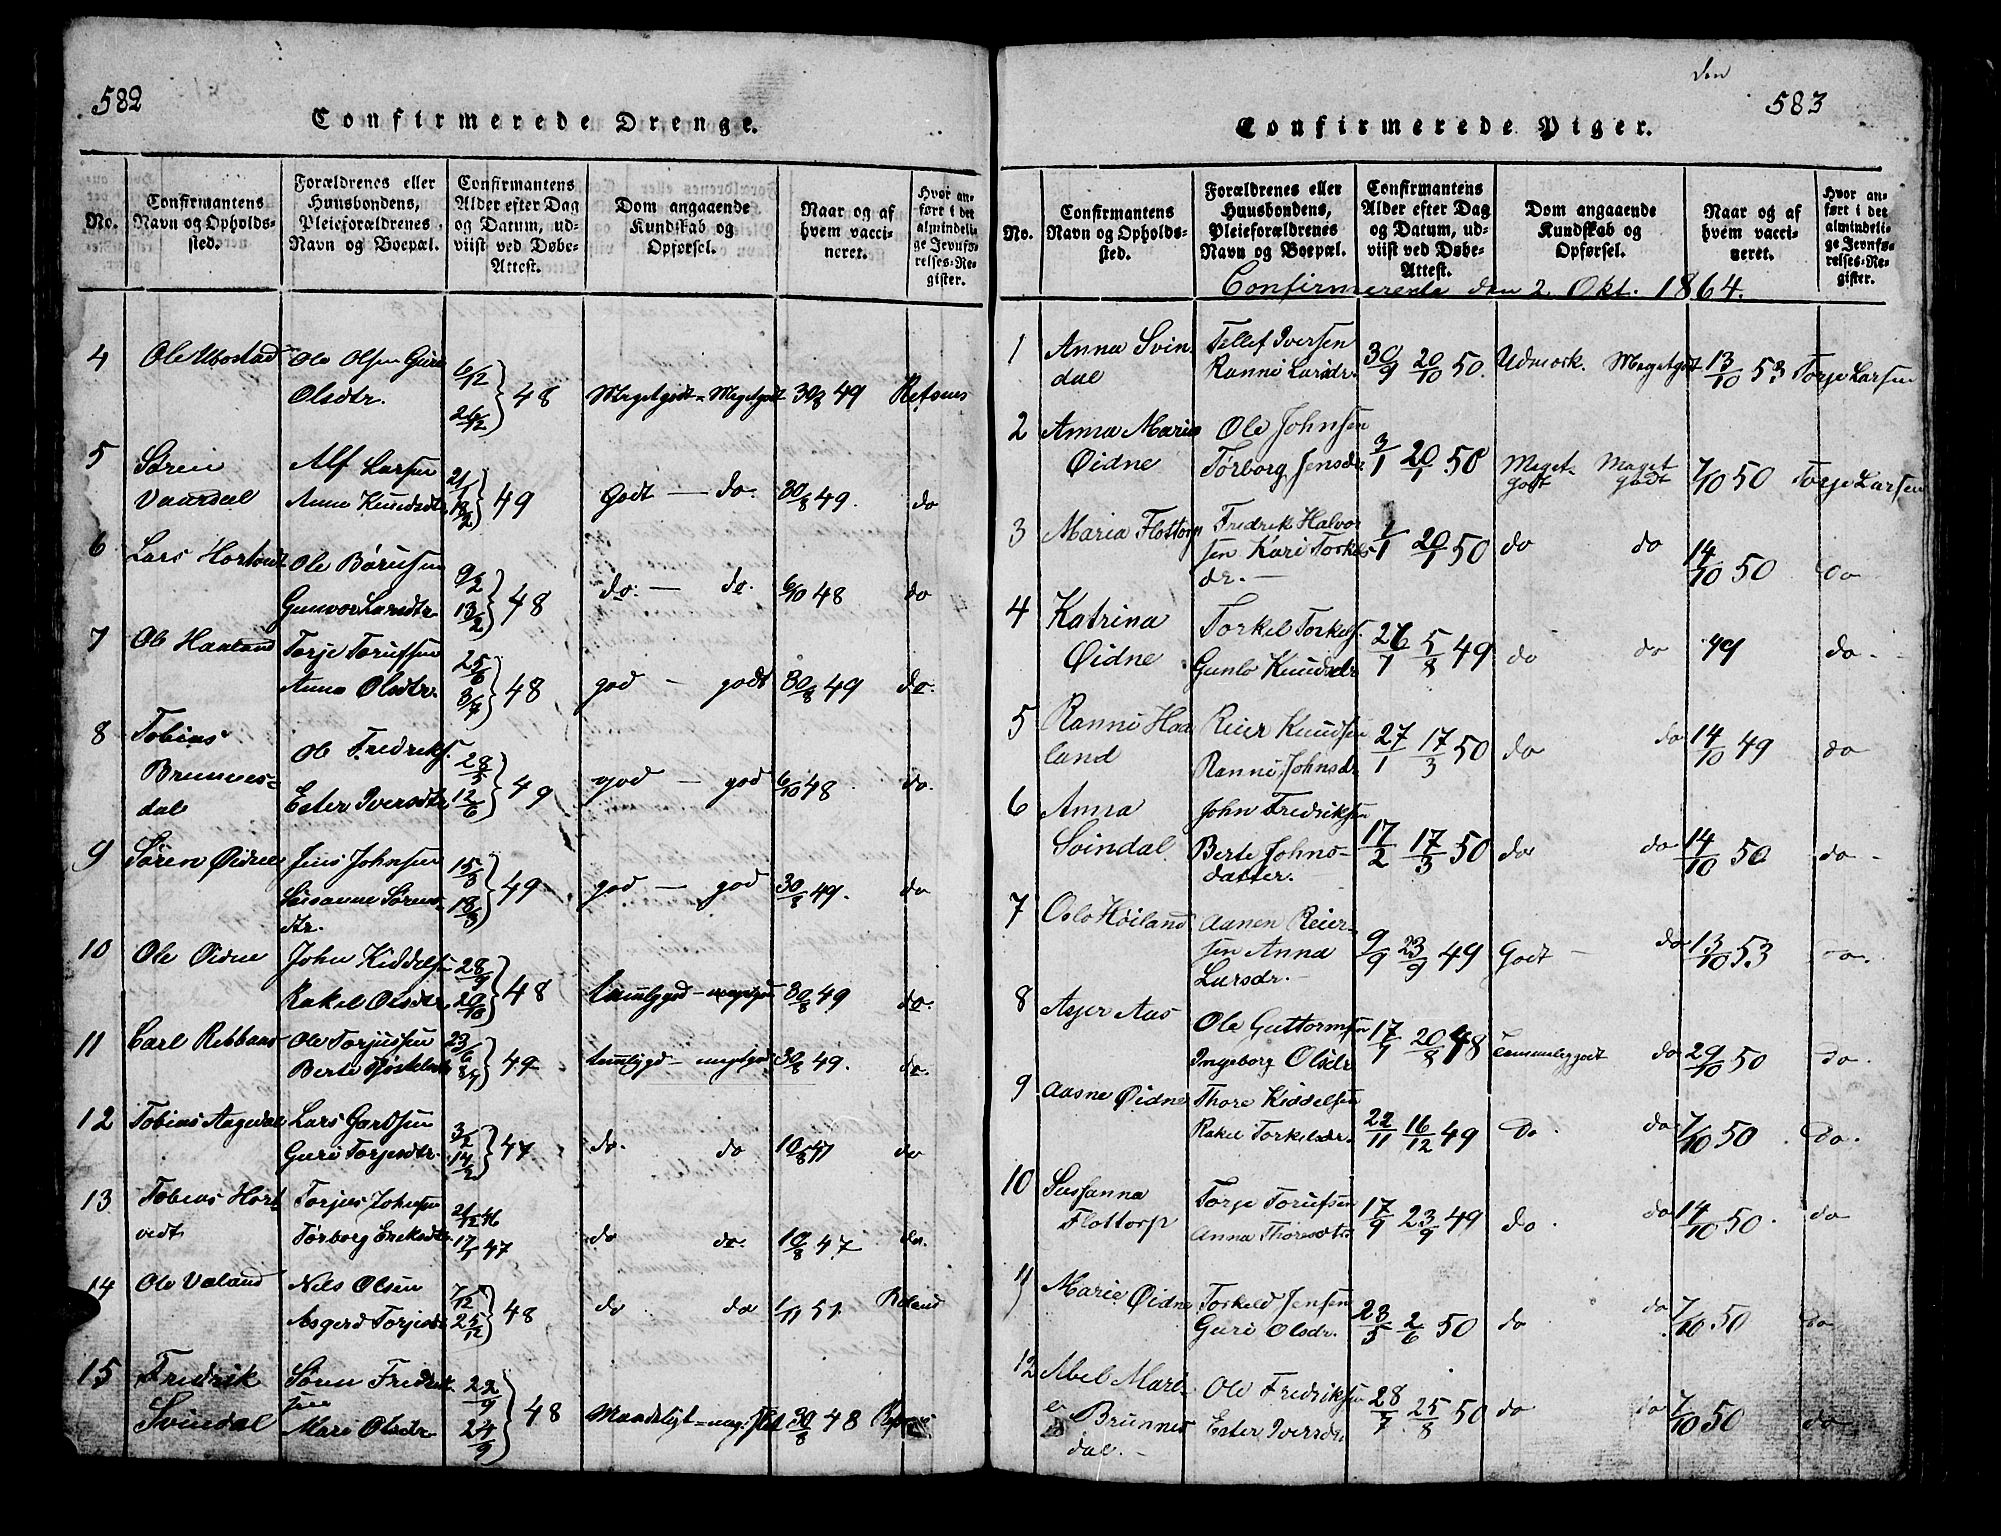 582
Confirmerede Drenge.
No.
Confirmantens Navn og Opholds-sted.
Forældrenes eller Huusbondens, Pleieforældrenes Navn og Boepæl.
Confirmantens Alder efter Dag og Datum, ud-viist ved Døbe-Attest.
Dom angaaende Kundskab og Opførsel.
Naar og af hvem vacci-neret.
Hvor an-ført i det almindeli-ge Jevnfø-relses-Re-gister.
4 Ole Ole Olsen Guri 6/12
Olsdtr. 26/12 } 48 Megetgodt - Megetgodt 30/8 49
5 Søren Alf Larsen 21/1
Vaardal Anna Knudsdtr 18/2 } 49 Godt - do. 30/8 49. do
6 Lars Ole Børusen 9/2
Gunvor Larsdtr 13/2 } 48 do. - do. 6/10 48 do
7 Ole Haaland Torje Torufsen 25/6
Anna Olsdtr. 8/7 } 48 god - godt 30/8 49 do.
8 Tobias Ole Fredriks. 28/5
Brunnes-
dal Ester Iversdtr 12/6 } 49 god - god 6/10 48 do.
9 Søren Øidne Jens Johnsen 15/3
Susanne Sørens-
dtr. 18/3 } 49 god - god 30/8 49. do
10 Ole Øidne John Kiddels. 28/9
Rakel Olsdtr. 20/10 } 48 30/8 49 do.
11 Carl Ole Torjussen 23/6
Berte } 49 30/8 49. do.
12 Tobias Aagedal Lars Gartsen 3/2
Guri Torjesdtr. 14/2 } 47 do. do 10/8 47 do
13 Tobias Hort
vedt Torjus Johnsen 21/12 46
Tørborg Eriksdtr. 17/1 47 do do. 10/8 47 do.
14 Ole Valand Nils Olsen 7/12
Asgerd Torjesdtr 25/12 } 48 do do 6/11 51.
15 Fredrik Søren Fredrik
sen 22/9
Svindal Mari Olsdtr 24/9 } 48 Maadeligt - 30/8 48
den
583
Confirmerede Piger.
No.
Confirmantens Navn og Opholds-sted.
Forældrenes eller Huusbondens, Pleieforældrenes Navn og Boepæl.
Confirmantens Alder efter Dag og Datum, ud-viist ved Døbe-Attest.
Dom angaaende Kundskab og Opførsel.
Naar og af hvem vacci-neret.
Hvor an-ført i det almindeli-ge Jevnfø-relses-Re-gister.
Confirmerede den 2. Okt. 1864.
1 Anna Svin-
dal Tellef Iversen
Ranni Larsdr. 30/9 20/10 50. Udmærk. Megetgodt 13/10 53 Torje Larsen
2 Anna Maria
Øidne Ole Johnsen
Tørborg Jensdr 3/1 20/1 50 Meget godt Meget godt 7/10 50 Torje Larsen
3 Maria Flottorp Fredrik Halvor
sen Kari Torkels
dr. - 1/1 20/1 50 do do 14/10 50 do
4 Katrina
Øidne Torkel Torkels.
Gunlo Knudsdr 26/7 5/8 49 do do 49 do.
5 Ranni Haa
land Reier Knudsen
Ranni Johnsdr 27/1 17/3 50 do do 14/10 49 do
6 Anna
Svindal John Fredriksen
Berte Johns-
datter. 17/2 17/3 50 do do 14/10 50 do -
7 Oslo Høiland Aanen Reier-
sen Anna
Larsdr. - 9/9 23/9 49 Godt - do 13/10 53 do.
8 Asjer Aas Ole Guttormsen
Ingeborg Olsdr 17/7 20/8 48 Temmeliggodt do 29/10 50 do.
9 Aasne Øidne Thore Kiddelsen
Rakel Torkelsdr. 22/11 16/12 49 Do. do 7/10 50. Do.
10 Susanna
Flottorp Torje Torufsen
Anna Thoresdtr 17/9 23/9 49 do. do 14/10 50. do
11 Marie Øidne Torkeld Jensen
Guri Olsdr. 23/5 2/6 50 do do 7/10 50 do
12 Abel Mari-
e Brunnes
dal. - Ole Fredriksen
Ester Iversdr. 28/7 25/8 50 do do 7/10 50 do